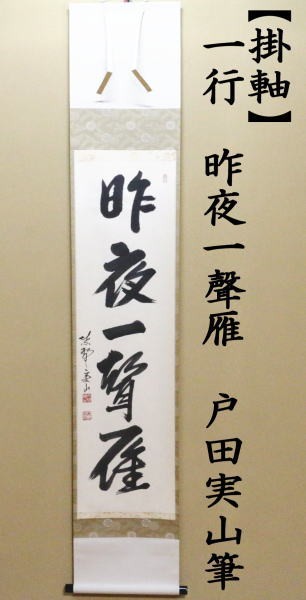 【掛軸】
一行　昨夜一聲雁　戸田実山筆
昨夜一聲雁